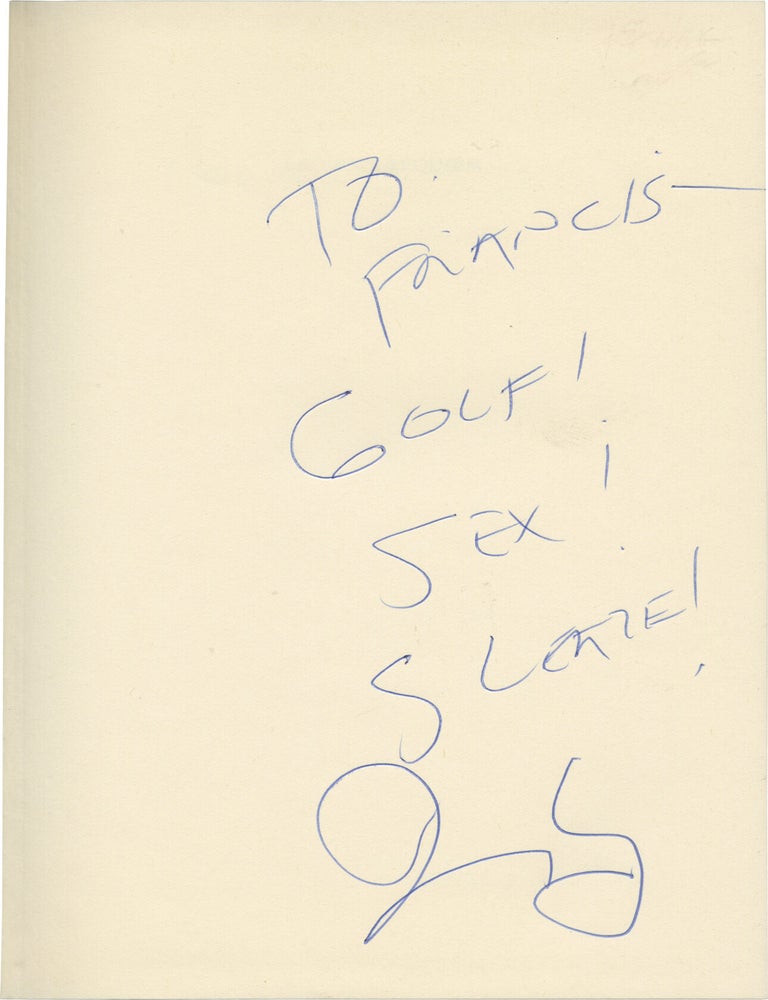 TO
FRANCIS—
GOLF!
SEX!
SLEAZE!